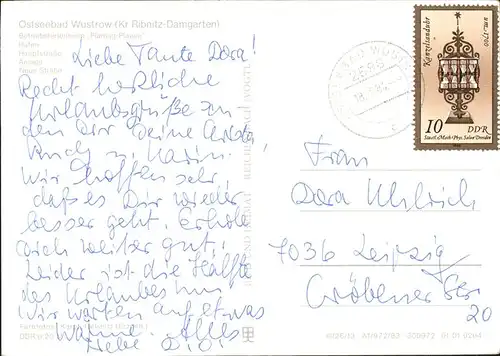 Ostseebad Wustrow (Kr Ribnitz-Damgarten)
Hafen
Hauptstraße
Neue Straße
Liebe Tante Dora!
Recht herzliche
Urlaubsgrüße an
den Dir Deine
Rudi u. Karin.
Wir hoffen sehr,
daß es Dir wieder
besser geht. Erhole
Dich weiter gut!
Leider ist die Hälfte
des Urlaubes um
Wir warten auf etwas
Wärme. Alles
Liebe D.O.
Kanzelsanduhr
um 1700
10 DDR
Staatl. Math.-Phys. Salon Dresden
Frau
Dora Uhlrich
7036 Leipzig
Gröbener Str
20